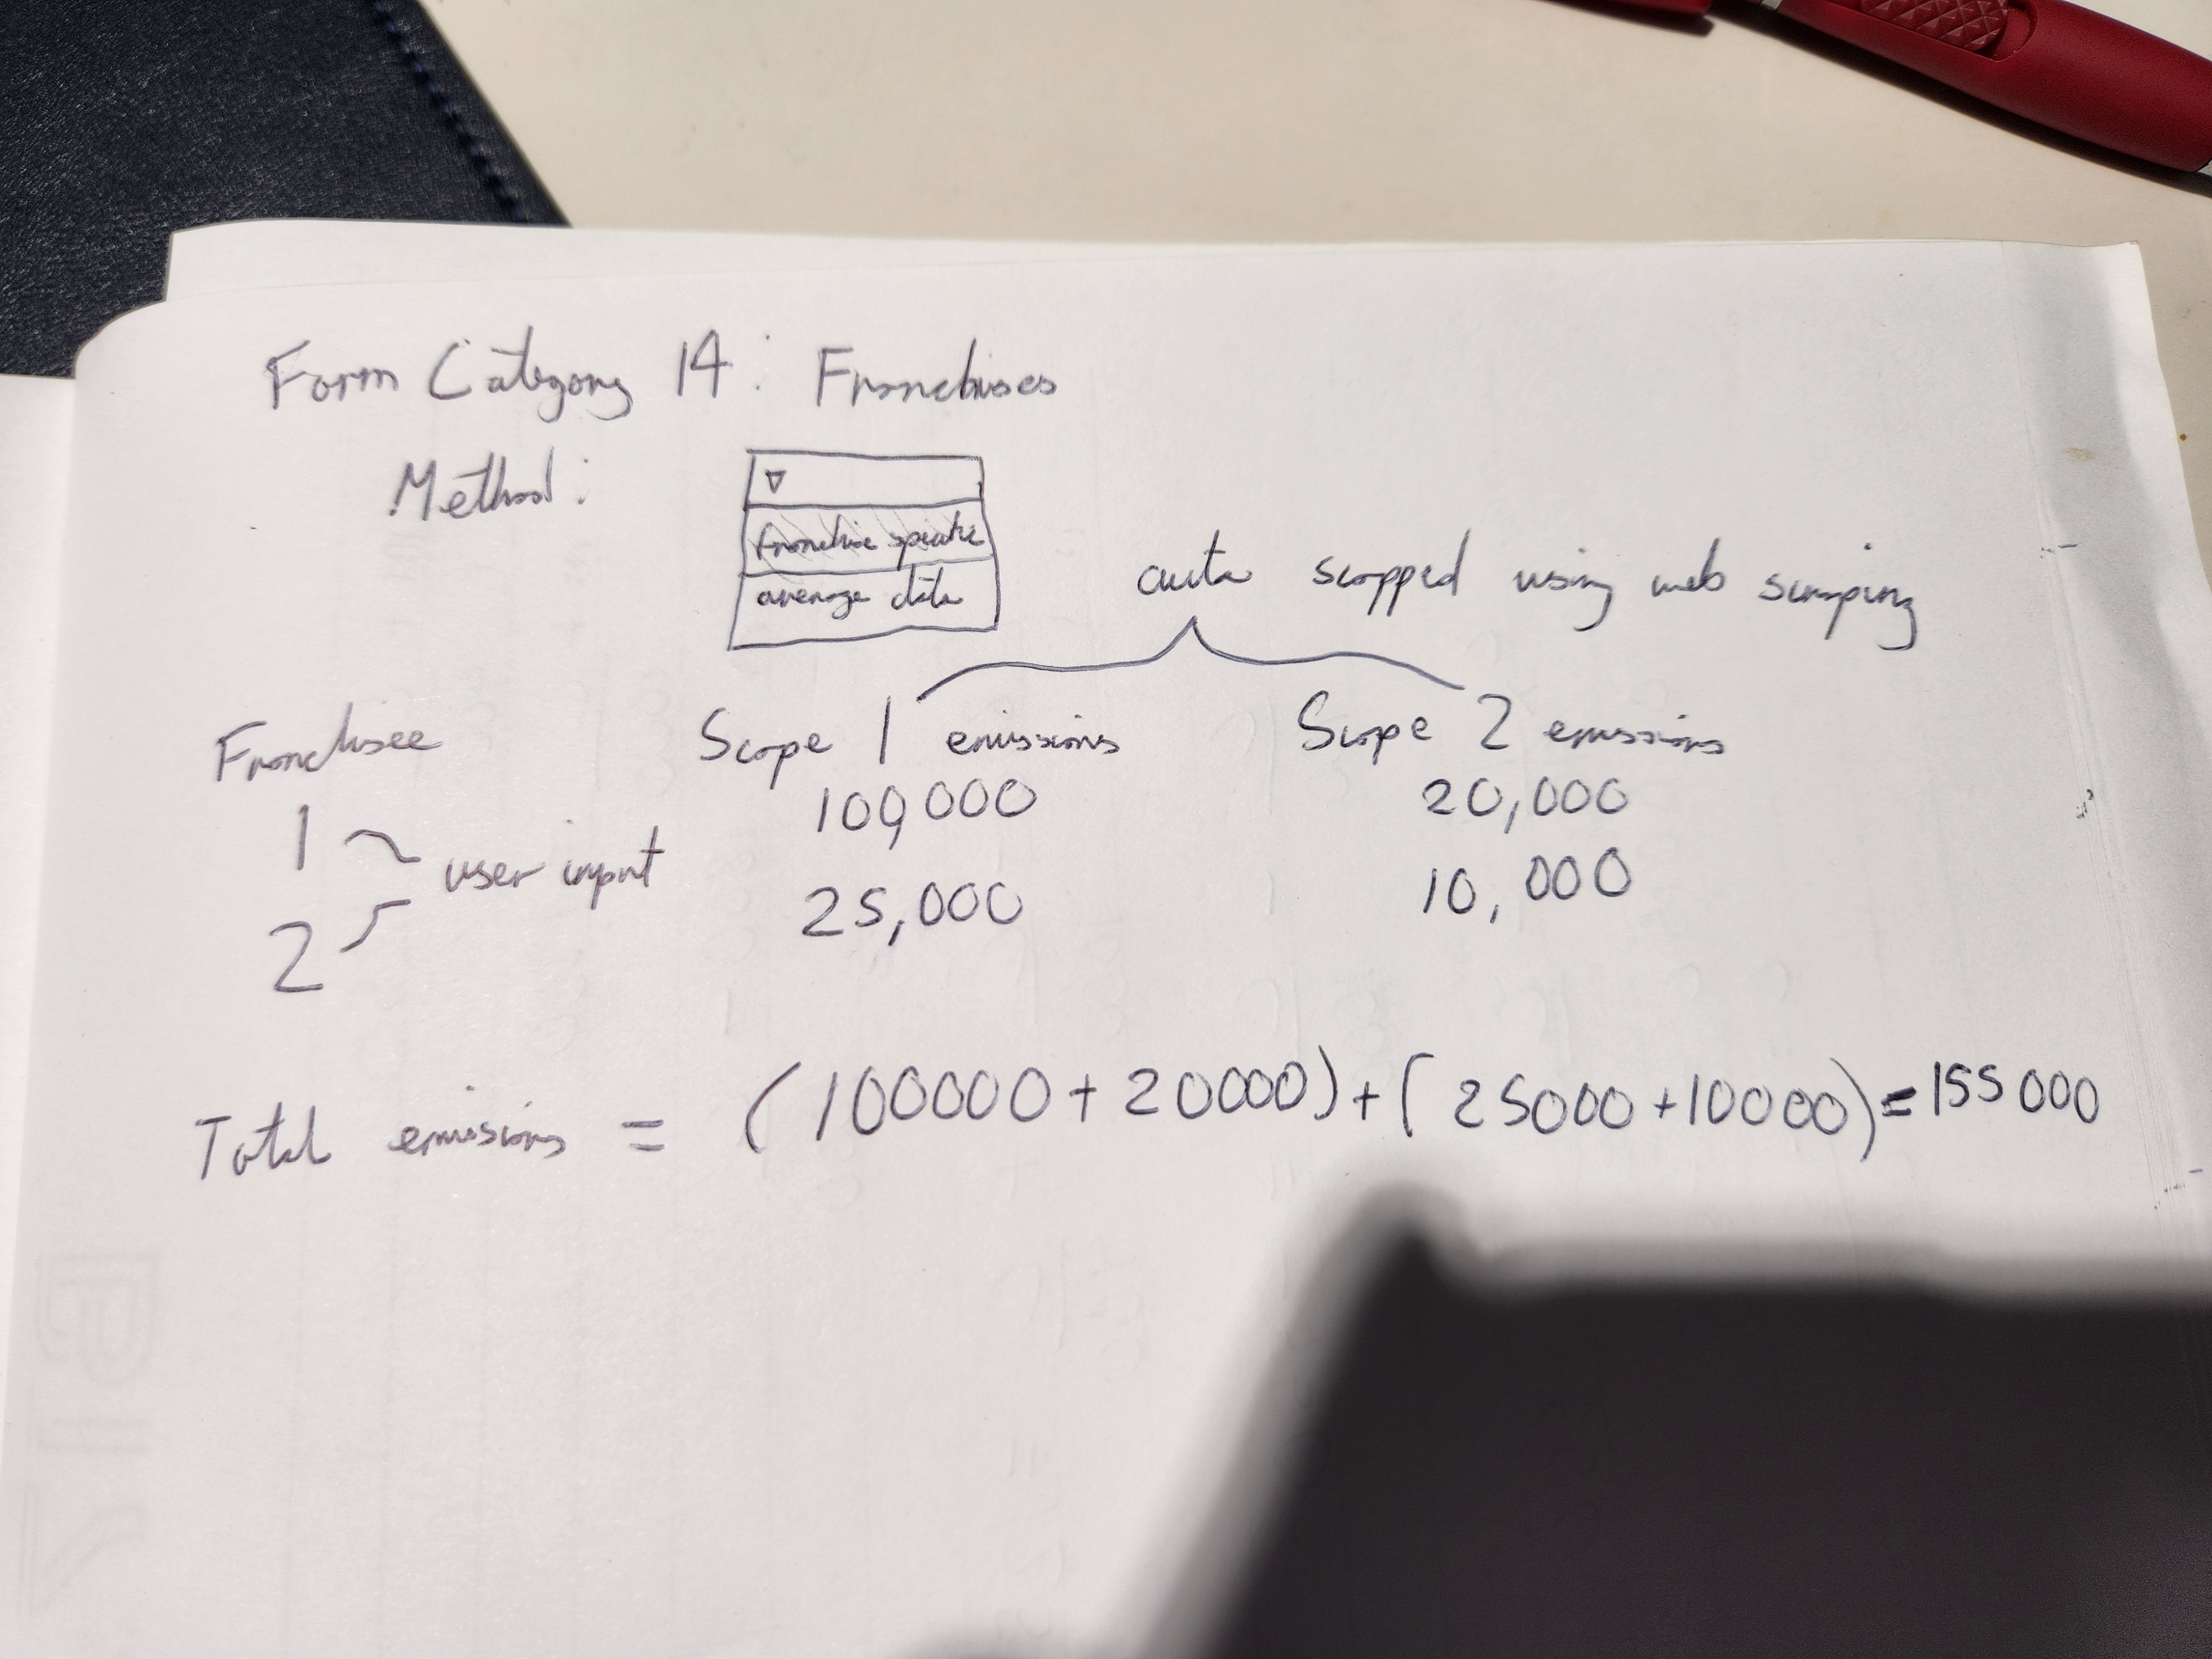 Form Category 14: Franchises
Method:
▽
franchise specific
average data
auto scrapped using web scraping
Franchisee Scope 1 emissions Scope 2 emissions
1 100,000 20,000
user input
2 25,000 10,000
Total emissions = (100000 + 20000) + (25000 + 10000) = 155000